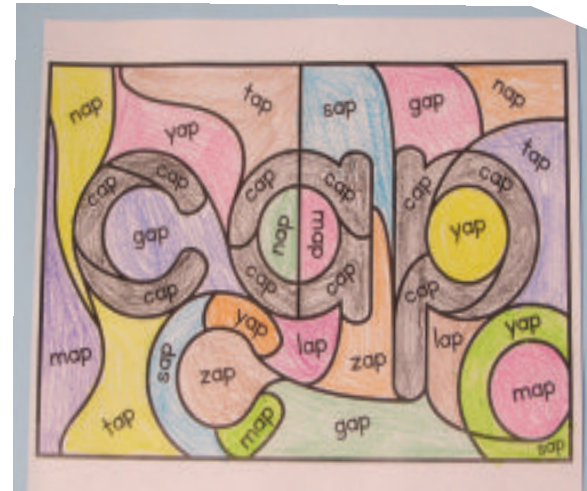 nap
tap
sap
gap
nap
yap
tap
cap
cap
cap
cap
cap
cap
gap
nap
map
yap
cap
cap
cap
cap
map
sap
yap
lap
zap
lap
yap
zap
map
tap
map
gap
sap